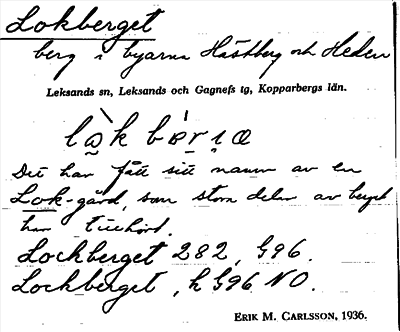 Lokberget
berg i byarna Hästberg och Heden
Leksands sn, Leksands och Gagnefs tg, Kopparbergs län.
Det har fått sitt namn av en
Lok-gård, som stora delar av berget
har tillhört.
Lochberget 282, G96.
Lochberget, k G96 NO.
ERIK M. CARLSSON, 1936.